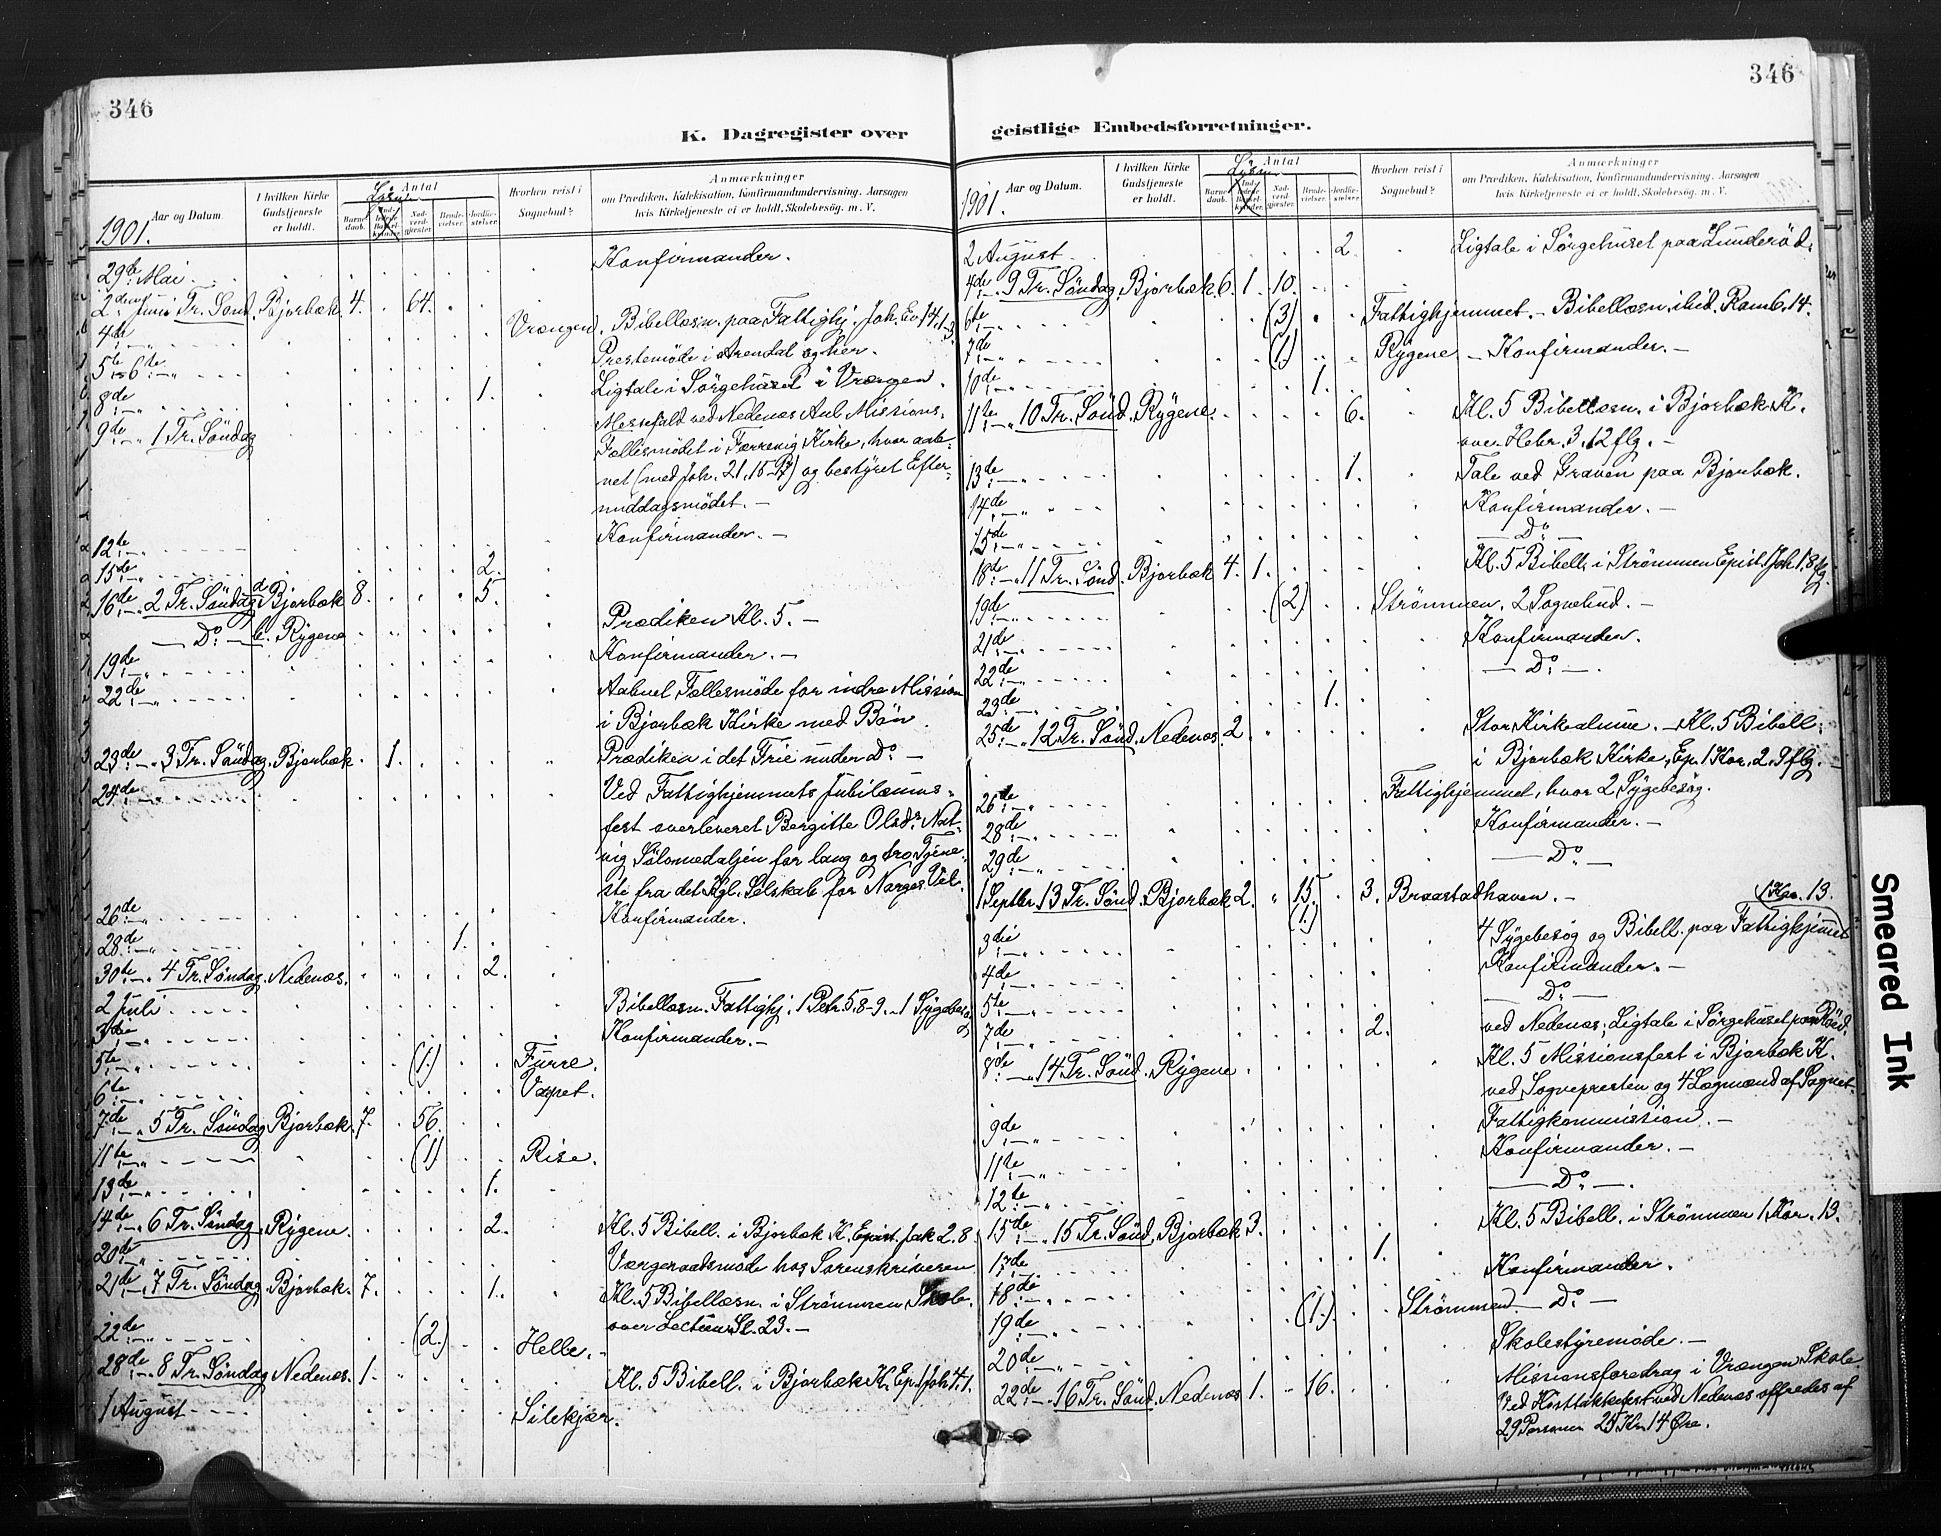 346
K. Dagregister over
1901.
Aar og Datum.
I hvilken Kirke Gudstjeneste er holdt.
Antal
Barne-daab.
Nad-verd-gjester.
Brude-vielser.
Jordfæ-stelser.
Hvorhen reist i Sognebud?
Anmærkninger
om Prædiken, Katekisation, Konfirmandundervisning, Aarsagen
hvis Kirketjeneste ei er holdt, Skolebesøg. m. V.
29de Mai. Konfirmander.
2den Juni Tr. Sønd. Bjorbæk 4. 64.
4de Vrængen. Bibellæsn. paa Fattighj. Joh. Ev. 14,1-3
5te-6te Prestemøde i Arendal og her.
8de 1. Ligtale i Sørgehuset i Vrængen.
9de 1 Tr. Søndag Messefald ved Nedenæs Missions-
Fællesmødet i Færevig Kirke, hvor aab-
net (med Joh. 21,15-17) og bestyret Efter-
middagsmødet.
12te Konfirmander.
15de 2.
16de 2 Tr. Søndag Bjorbæk 8. 5.
Do. Rygene Prædiken Kl. 5.
19de Konfirmander.
22de Aabnet Fællesmøde for indre Mission
i Bjorbæk Kirke med Bøn.
23de 3 Tr. Søndag. Bjorbæk. 1. Prædiken i det Frie under Do.
24de Ved Fattighjemmets Jubilæums-
fest overleveret Bergitte Olsdr. Nat-
vig Sølvmedaljen for lang og tro Tjene-
ste fra det Kgl. Selskab for Norges Vel.
26de Konfirmander.
28de 1.
30de 4 Tr. Søndag. Nedenæs. 2.
2 Juli Bibellæsn. Fattighj. 1 Petr. 5,8-9. 1 Sygebesøg
3die Konfirmander.
5te (1.) Furre.
6te Vappet.
7de 5 Tr. Søndag Bjorbæk. 7. 56.
11te (1) Rise.
13de 1.
14de 6 Tr. Søndag Rygene. 2. Kl. 5 Bibell. i Bjorbæk K. Epist. Jak 2.8
20de Vergeraadsmøde hos Sorenskriveren
21de 7 Tr. Søndag Bjorbæk. 7. 1. Kl. 5 Bibellæsn. i Strømmen Skole
over Sl. 23.
22de (2.) Helle.
28de 8 Tr. Søndag Nedenæs. 1. Kl. 5 Bibell. i Bjorbæk K. Ep. 1 Joh 4.1.
1 August Silekjær.
346
geistlige Embedsforretninger.
1901.
Aar og Datum.
I hvilken Kirke Gudstjeneste er holdt.
Antal
Barne-daab.
Nad-verd-gjester.
Brude-vielser.
Jordfæ-stelser.
Hvorhen reist i Sognebud?
Anmærkninger
om Prædiken, Katekisation, Konfirmandundervisning, Aarsagen
hvis Kirketjeneste ei er holdt, Skolebesøg. m. V.
2 August 2. Ligtale i Sørgehuset paa Lunderød.
4de 9 Tr. Søndag Bjorbæk 6. 1. 10.
6te (3) Fattighjemmet. Bibellæsn. ibid. Rom 6.14.
7de (1.) Rygene Konfirmander.
10de 1.
11te 10 Tr. Sønd. Rygene. 6. Kl. 5 Bibellæsn. i Bjorbæk K.
over Hebr. 3.12 flg.
13de 1. Tale ved Graven paa Bjorbæk.
14de Konfirmander.
15de Do.
18de 11 Tr. Sønd. Bjorbæk 4. 1. Kl. 5 Bibell. i Strømmen Epist. 1 Joh 1.8 flg
19de (2) Strømmen. 2 Sognebud.
21de Konfirmander.
22de Do.
23de 1.
25de 12 Tr. Sønd. Nedenæs. 2. Stor Kirkealmue. Kl. 5 Bibell.
i Bjorbæk Kirke, Ep. 1 Kor. 2.9 flg.
26de Fattighjemmet, hvor 2 Sygebesøg.
28de Konfirmander.
29de Do.
1 Septbr. 13 Tr. Sønd. Bjorbæk 2. 15. 3. Braastadhaven. 1 Kor. 13.
3die (1.) 4 Sygebesøg og Bibell. paa Fattighjemmet
4de Konfirmander.
5te Do.
7de 2. ved Nedenæs; Ligtale i Sørgehuset paa
8de 14 Tr. Sønd. Rygene Kl. 5 Missionsfest i Bjorbæk K.
ved Sognepresten og 4 Lægmænd af Sognet.
9de Fattigkommission.
11te Konfirmander.
12te Do.
15de 15 Tr. Sønd. Bjorbæk 3. Kl. 5 Bibell. i Strømmen 1 Kor. 13.
17de 1.
18de Konfirmander.
19de (1.) Strømmen. Do.
20de Skolestyremøde.
22de 16 Tr. Sønd. Nedenæs 1. 16. Missionsforedrag i Vrængen Skole
Ved Høsttakkefest ved Nedenæs offredes af
29 Personer 25 Kr. 14 Øre.
Smeared Ink